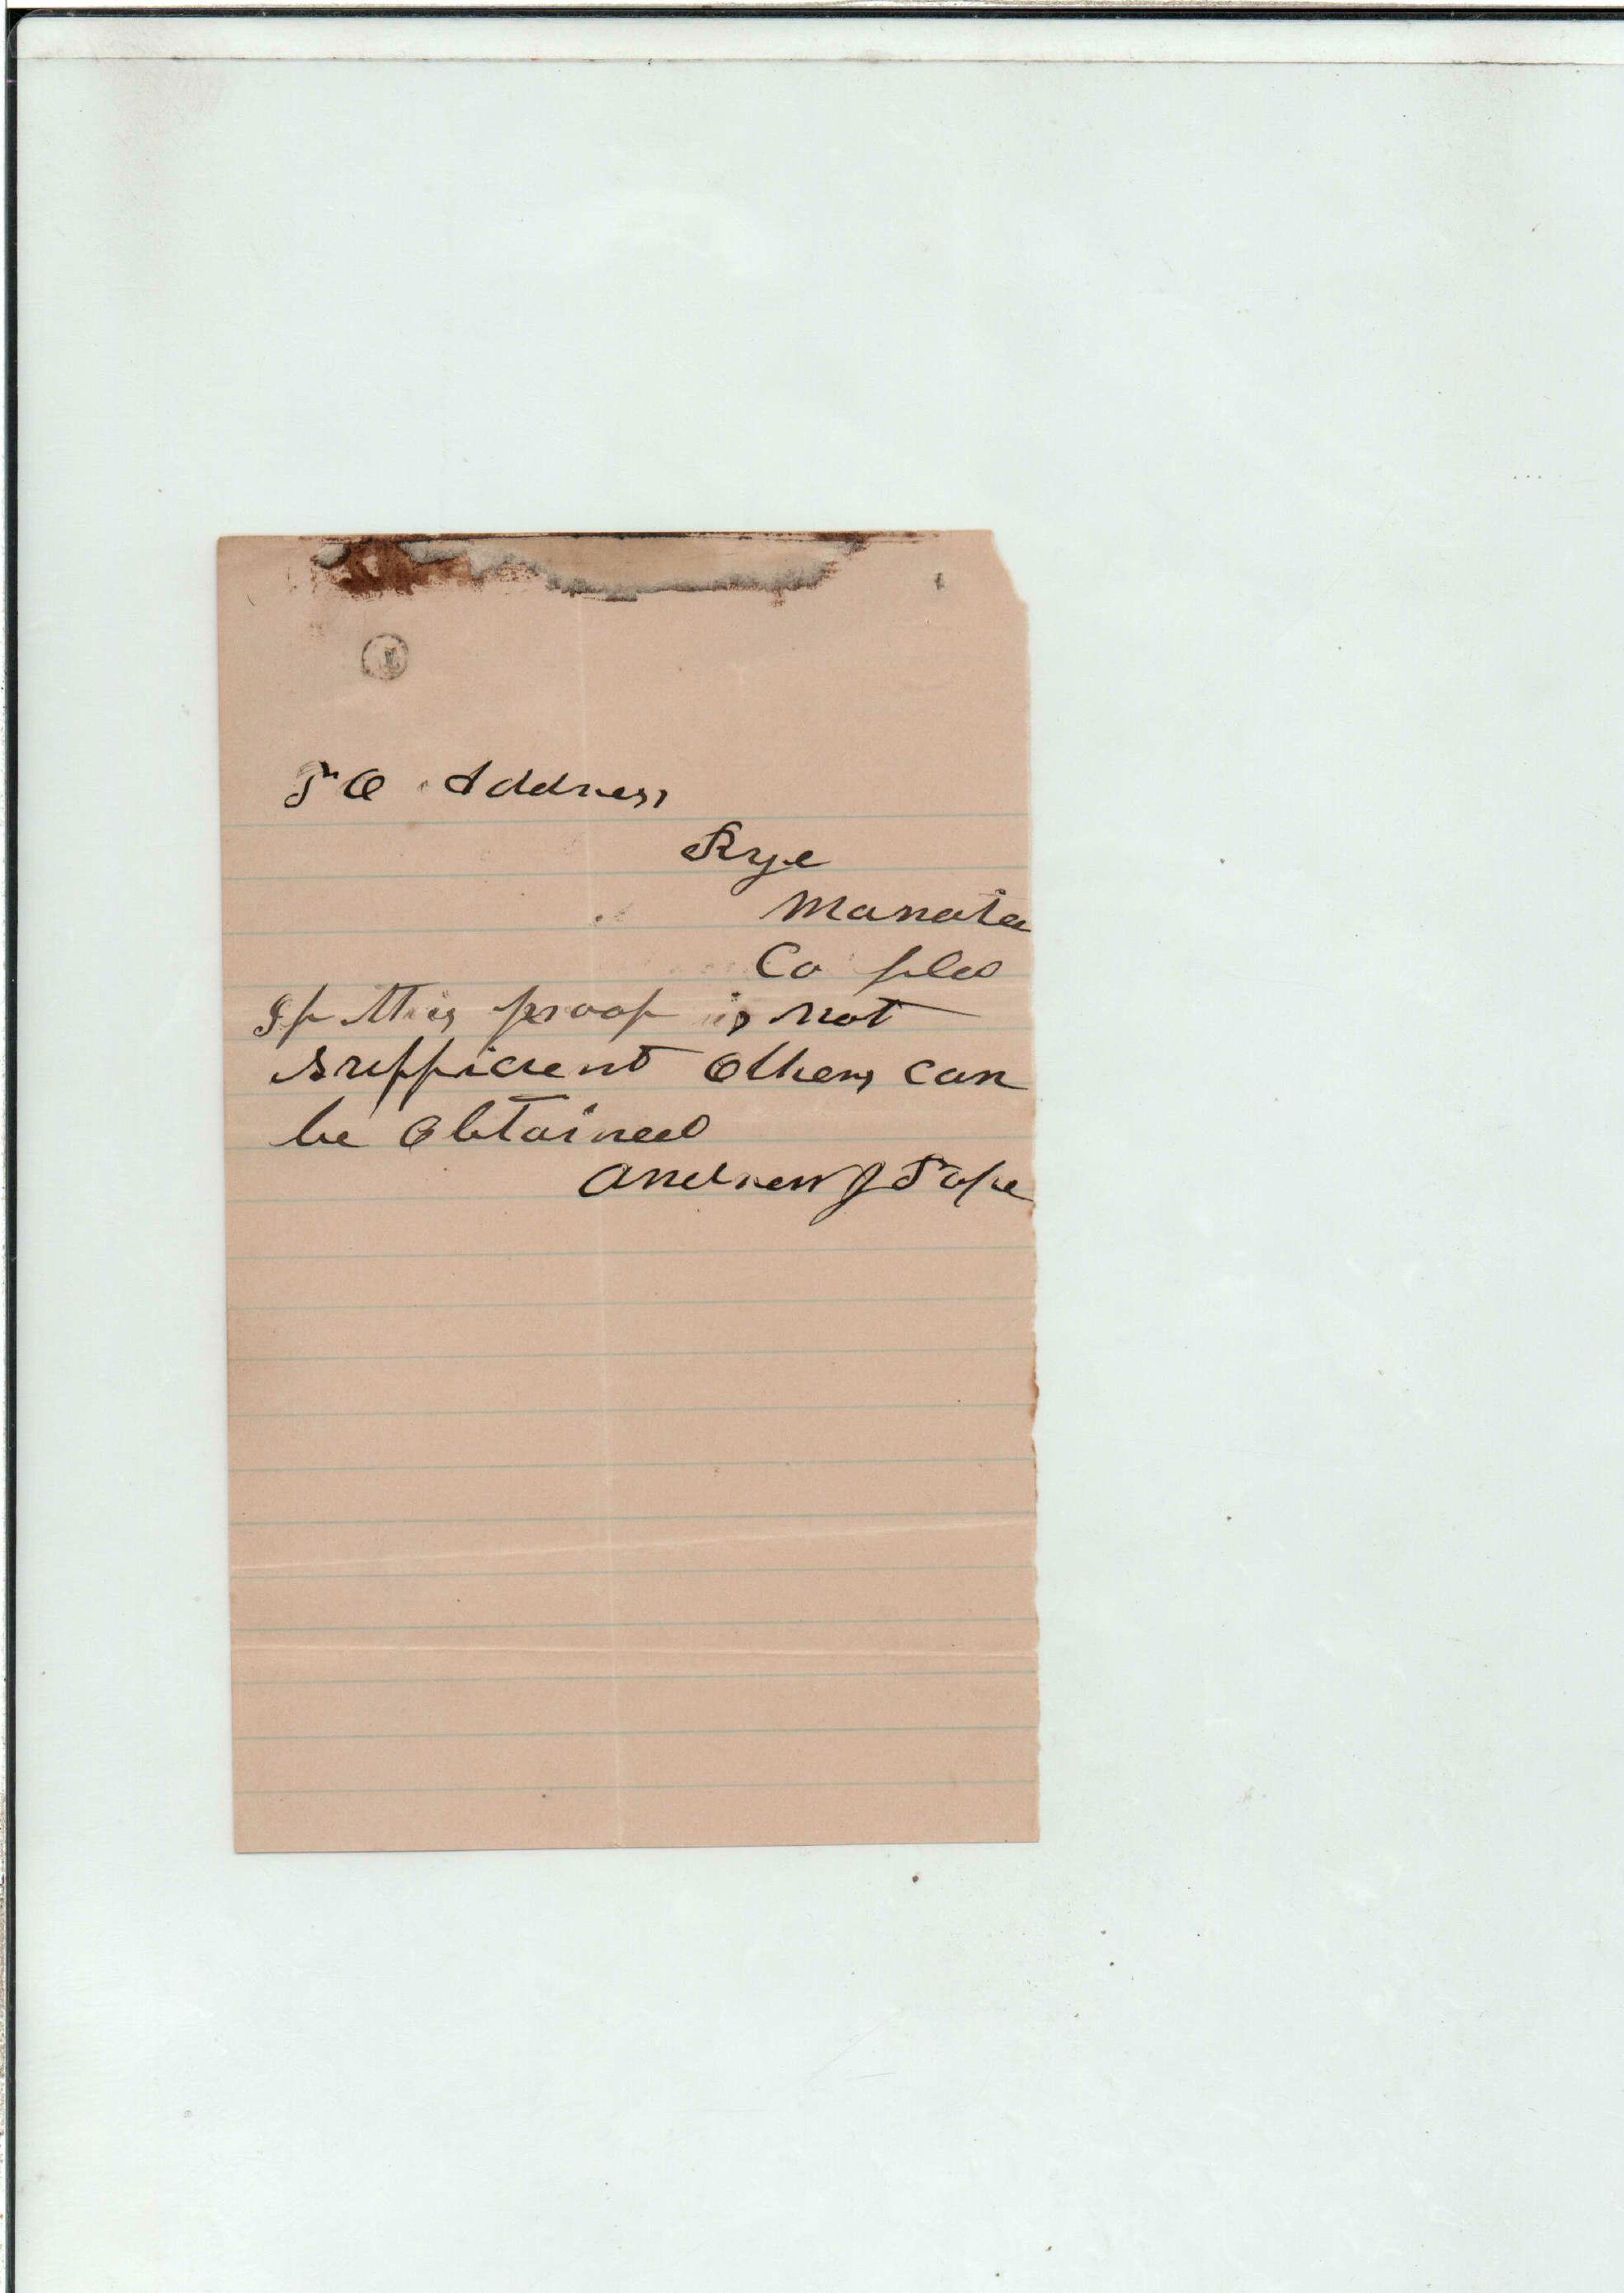 P O Address
Rye
Manatee
Co fla
If this proof is not
sufficient others can
be obtained
Andrew J Pope